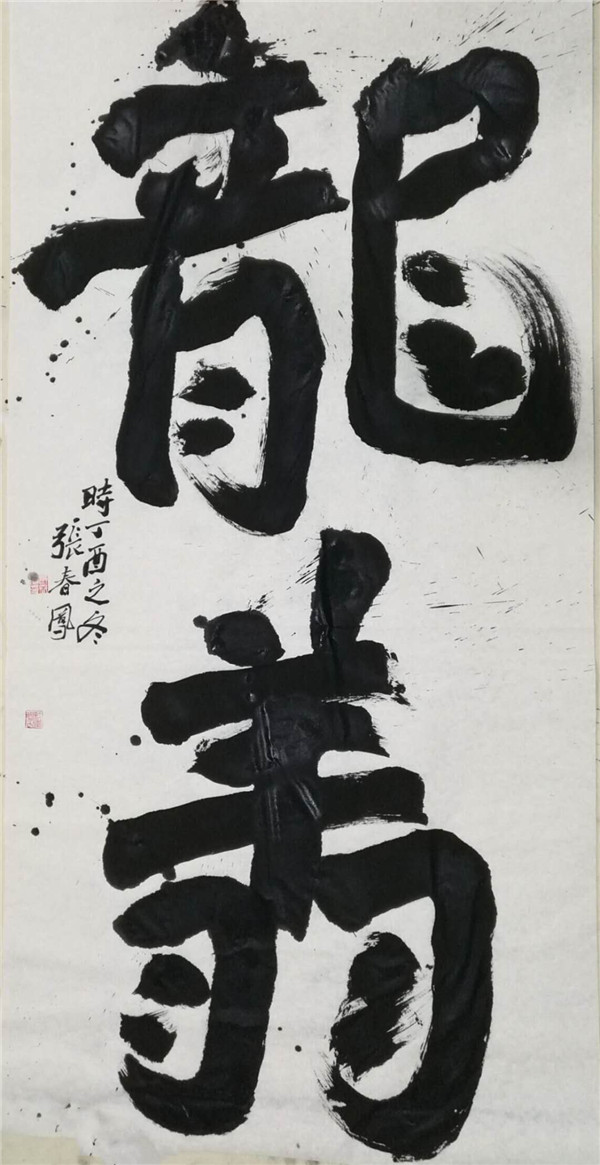 龍翔
時丁酉之冬
張春鳳